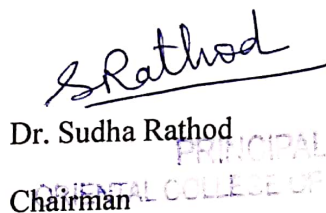 SRathod
Dr. Sudha Rathod
PRINCIPAL
Chairman
ORIENTAL COLLEGE OF